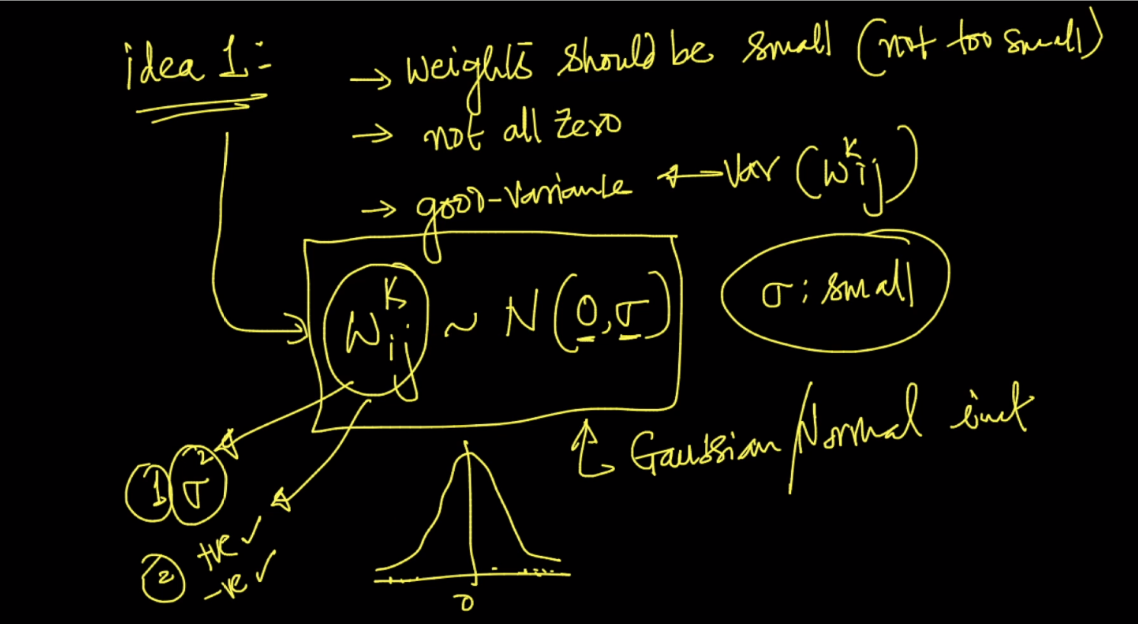 idea 1:-
→ Weights should be small (not too small)
→ not all zero
→ good-variance ← Var (W^k_ij)
W^k_ij ~ N(0, σ)
σ: small
Gaussian/Normal init
① σ²
② +ve ✓
-ve ✓
0